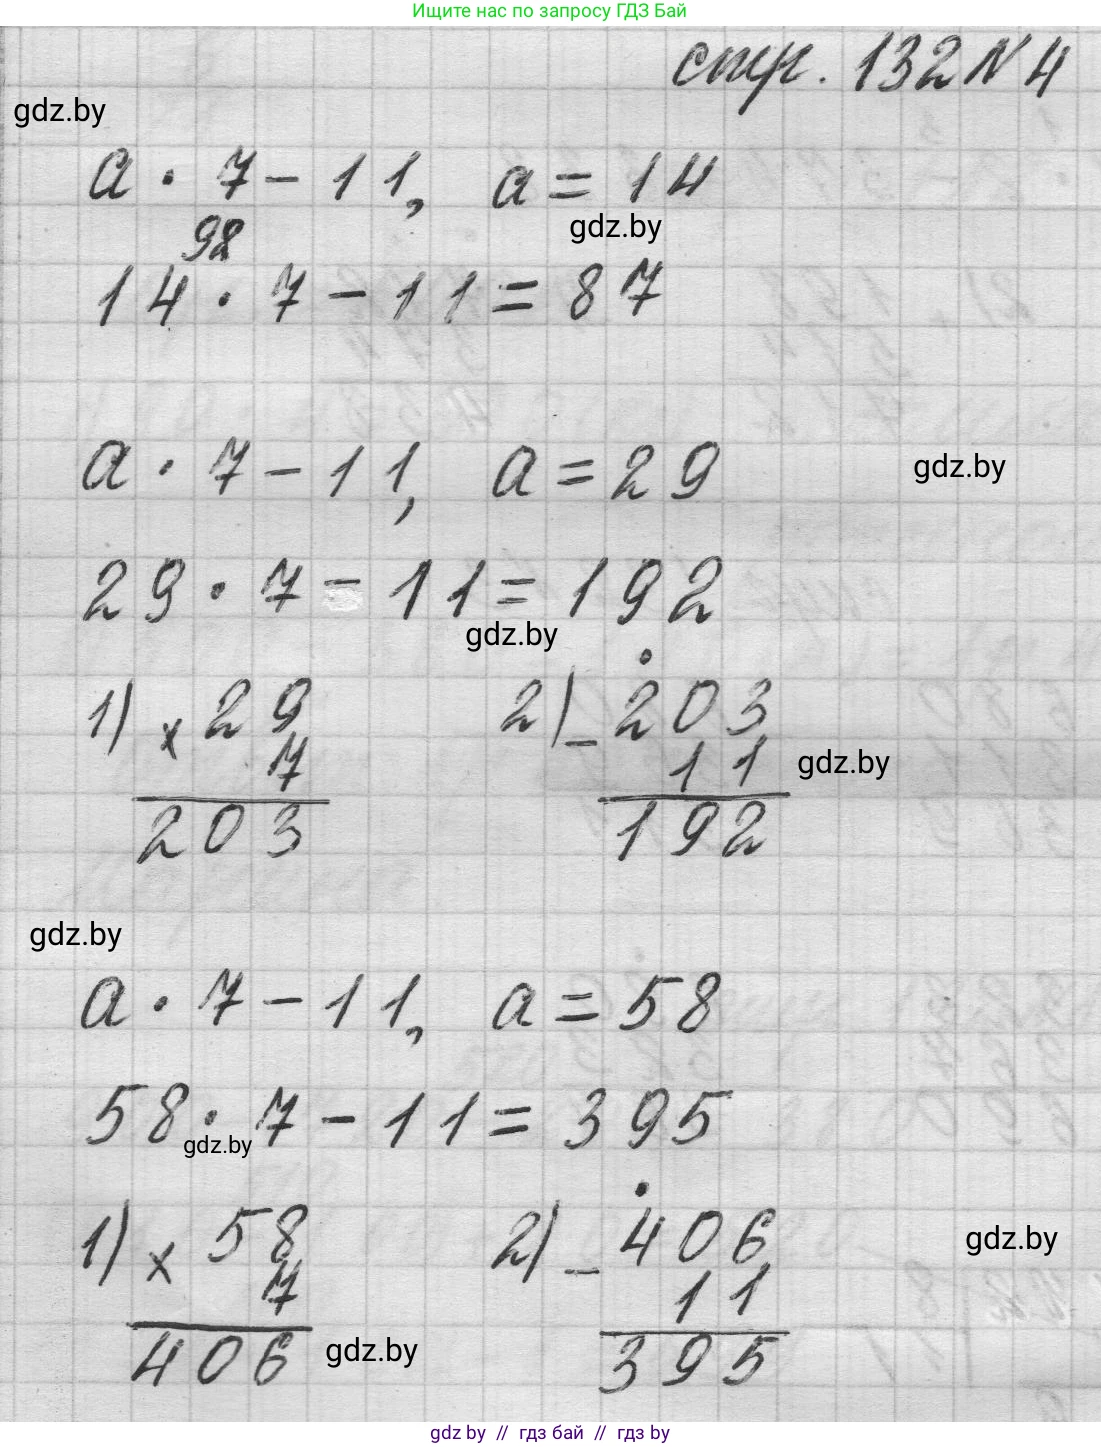 Ищите нас по запросу ГДЗ Бай
стр. 132 N 4
gdz.by
a · 7 - 11, a = 14
gdz.by
98
14 · 7 - 11 = 87
a · 7 - 11, a = 29
gdz.by
29 · 7 - 11 = 192
gdz.by
1) × 29
7
203
2) - 203
11
192
gdz.by
gdz.by
a · 7 - 11, a = 58
58 · 7 - 11 = 395
gdz.by
1) × 58
7
406
2) - 406
11
395
gdz.by
gdz.by
gdz by // гдз бай // gdz by